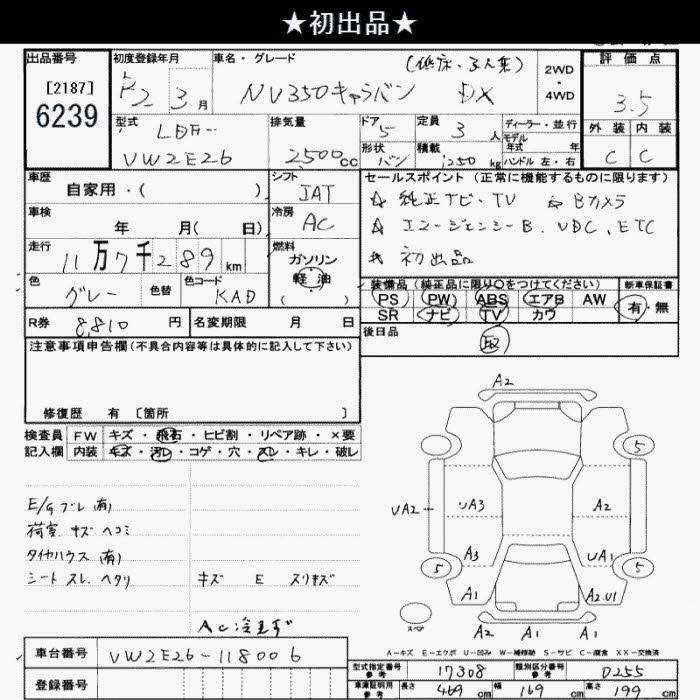 ★初出品★
出品番号 初度登録年月 車名・グレード (低床・3人乗) 2WD・4WD 評価点
[2187]
6239
R2 3月 NV350キャラバン DX 3.5
型式 LDF- 排気量 ドア 5 定員 3人 ディーラー・並行 外装 内装
モデル年式 年
VW2E26 2500cc 形状 バン 積載 1250kg ハンドル 左・右 C C
車歴 自家用・( ) シフト IAT セールスポイント (正常に機能するものに限ります)
車検 年 月( 日) 冷房 AC ☆ 純正ナビ・TV ☆ Bカメラ
☆ エマージェンシーB. VDC, ETC
走行 11万7千289km 燃料 ガソリン 軽油 ( ) ☆ 初出品
色 グレー 色替 色コード KAD
装備品 (純正品に限り○をつけてください) 新車保証書
PS PW ABS エアB AW 有・無
SR ナビ TV カワ
R券 8,810円 名変期限 月 日 後日品 取
注意事項申告欄(不具合内容等は具体的に記入して下さい)
修復歴 有 [箇所 ]
検査員 FW キズ・飛石・ヒビ割・リペア跡・×要
記入欄 内装 キズ・汚レ・コゲ・穴・スレ・キレ・破レ
E/gブレ(有)
荷室 キズ ヘコミ
タイヤハウス(有)
シート スレ. ヘタリ キズ E スリキズ
A2
5
UA2 UA3 A2
A3 UA1
5 5
A1 A2.U1
スペア A2 A1 A1
A-キズ E-エクボ U-凹み W-補修跡 S-サビ C-腐食 XX-交換済
車台番号 VW2E26-118006
型式指定番号 参考 17308 類別区分番号 参考 0255
登録番号
車庫証明用 参考 長さ 469cm 幅 169cm 高さ 199cm